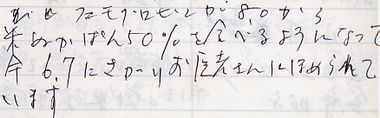 ヘモグロビンが8.0から
米ぬかぱん50%を食べるようになって
今6.7にさがりお医者さんにほめられて
います